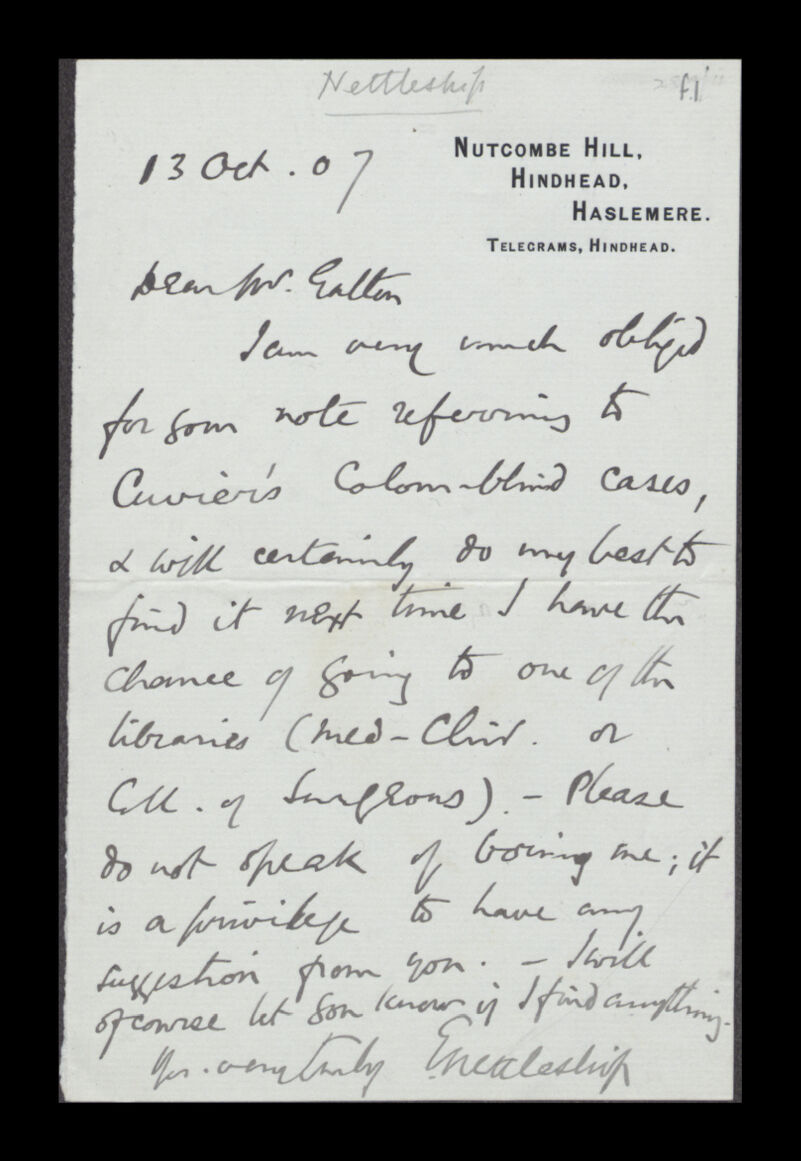 Nettleship
f.1
13 Oct. 07
NUTCOMBE HILL,
HINDHEAD,
HASLEMERE.
TELEGRAMS, HINDHEAD.
Dear Mr. Galton
I am very much obliged
for your note referring to
Cuvier's Colour-blind cases,
& will certainly do my best to
find it next time I have the
chance of going to one of the
libraries (Med-Chir. or
Coll. of Surgeons). - Please
do not speak of boring me; it
is a privilege to have any
suggestion from you. - I will
of course let you know if I find anything.
Yrs. very truly ENettleship